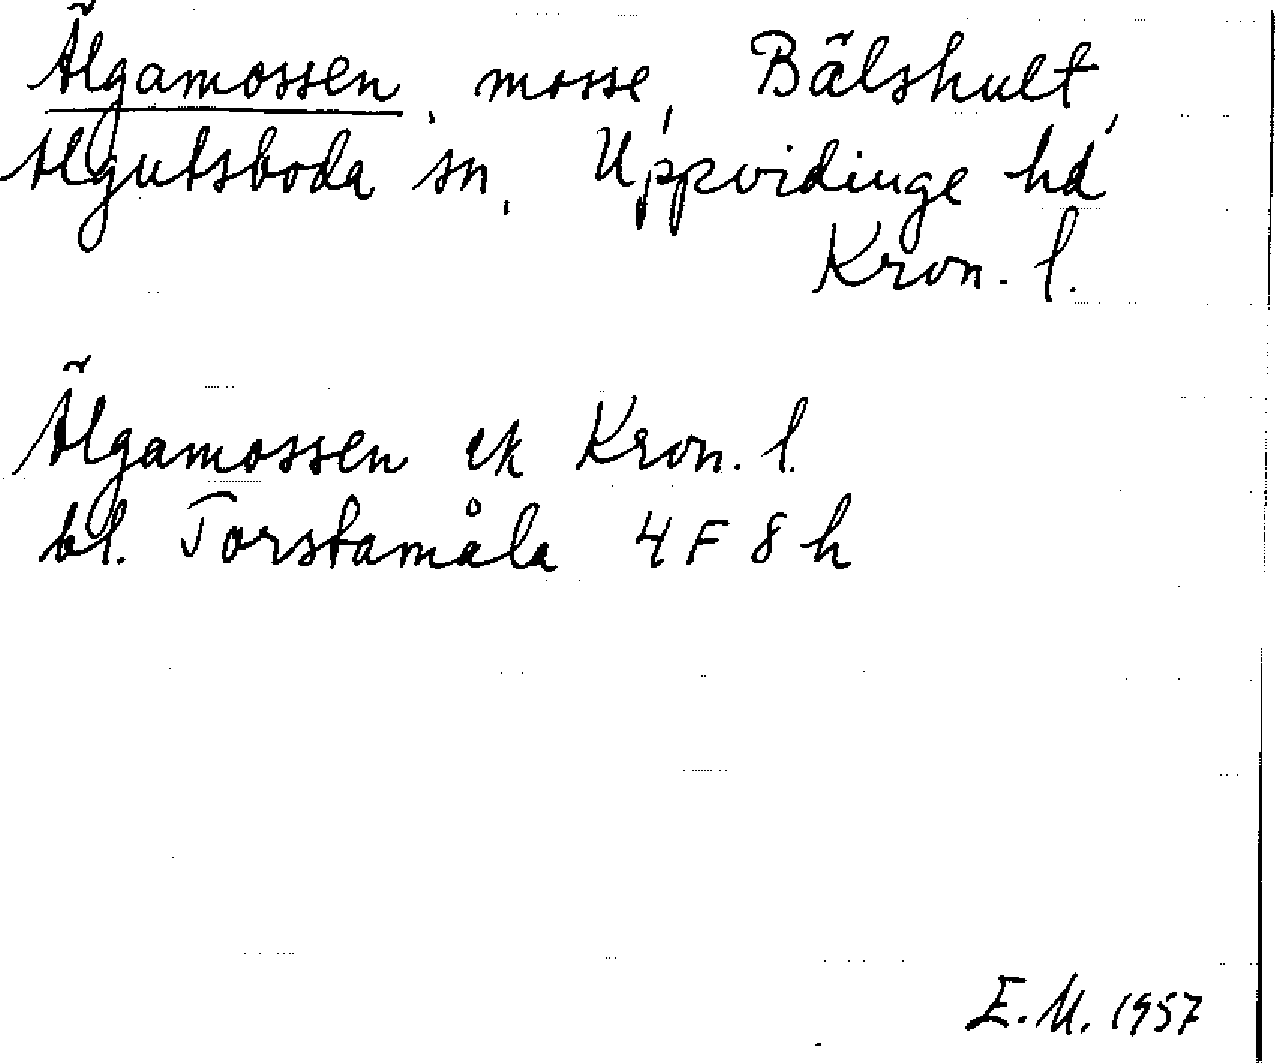 Älgamossen, mosse, Bälshult,
Algutsboda sn, Uppvidinge hd
Kron. l.
Älgamossen ek Kron. l.
bl. Torstamåla 4F 8h
E.M. 1957